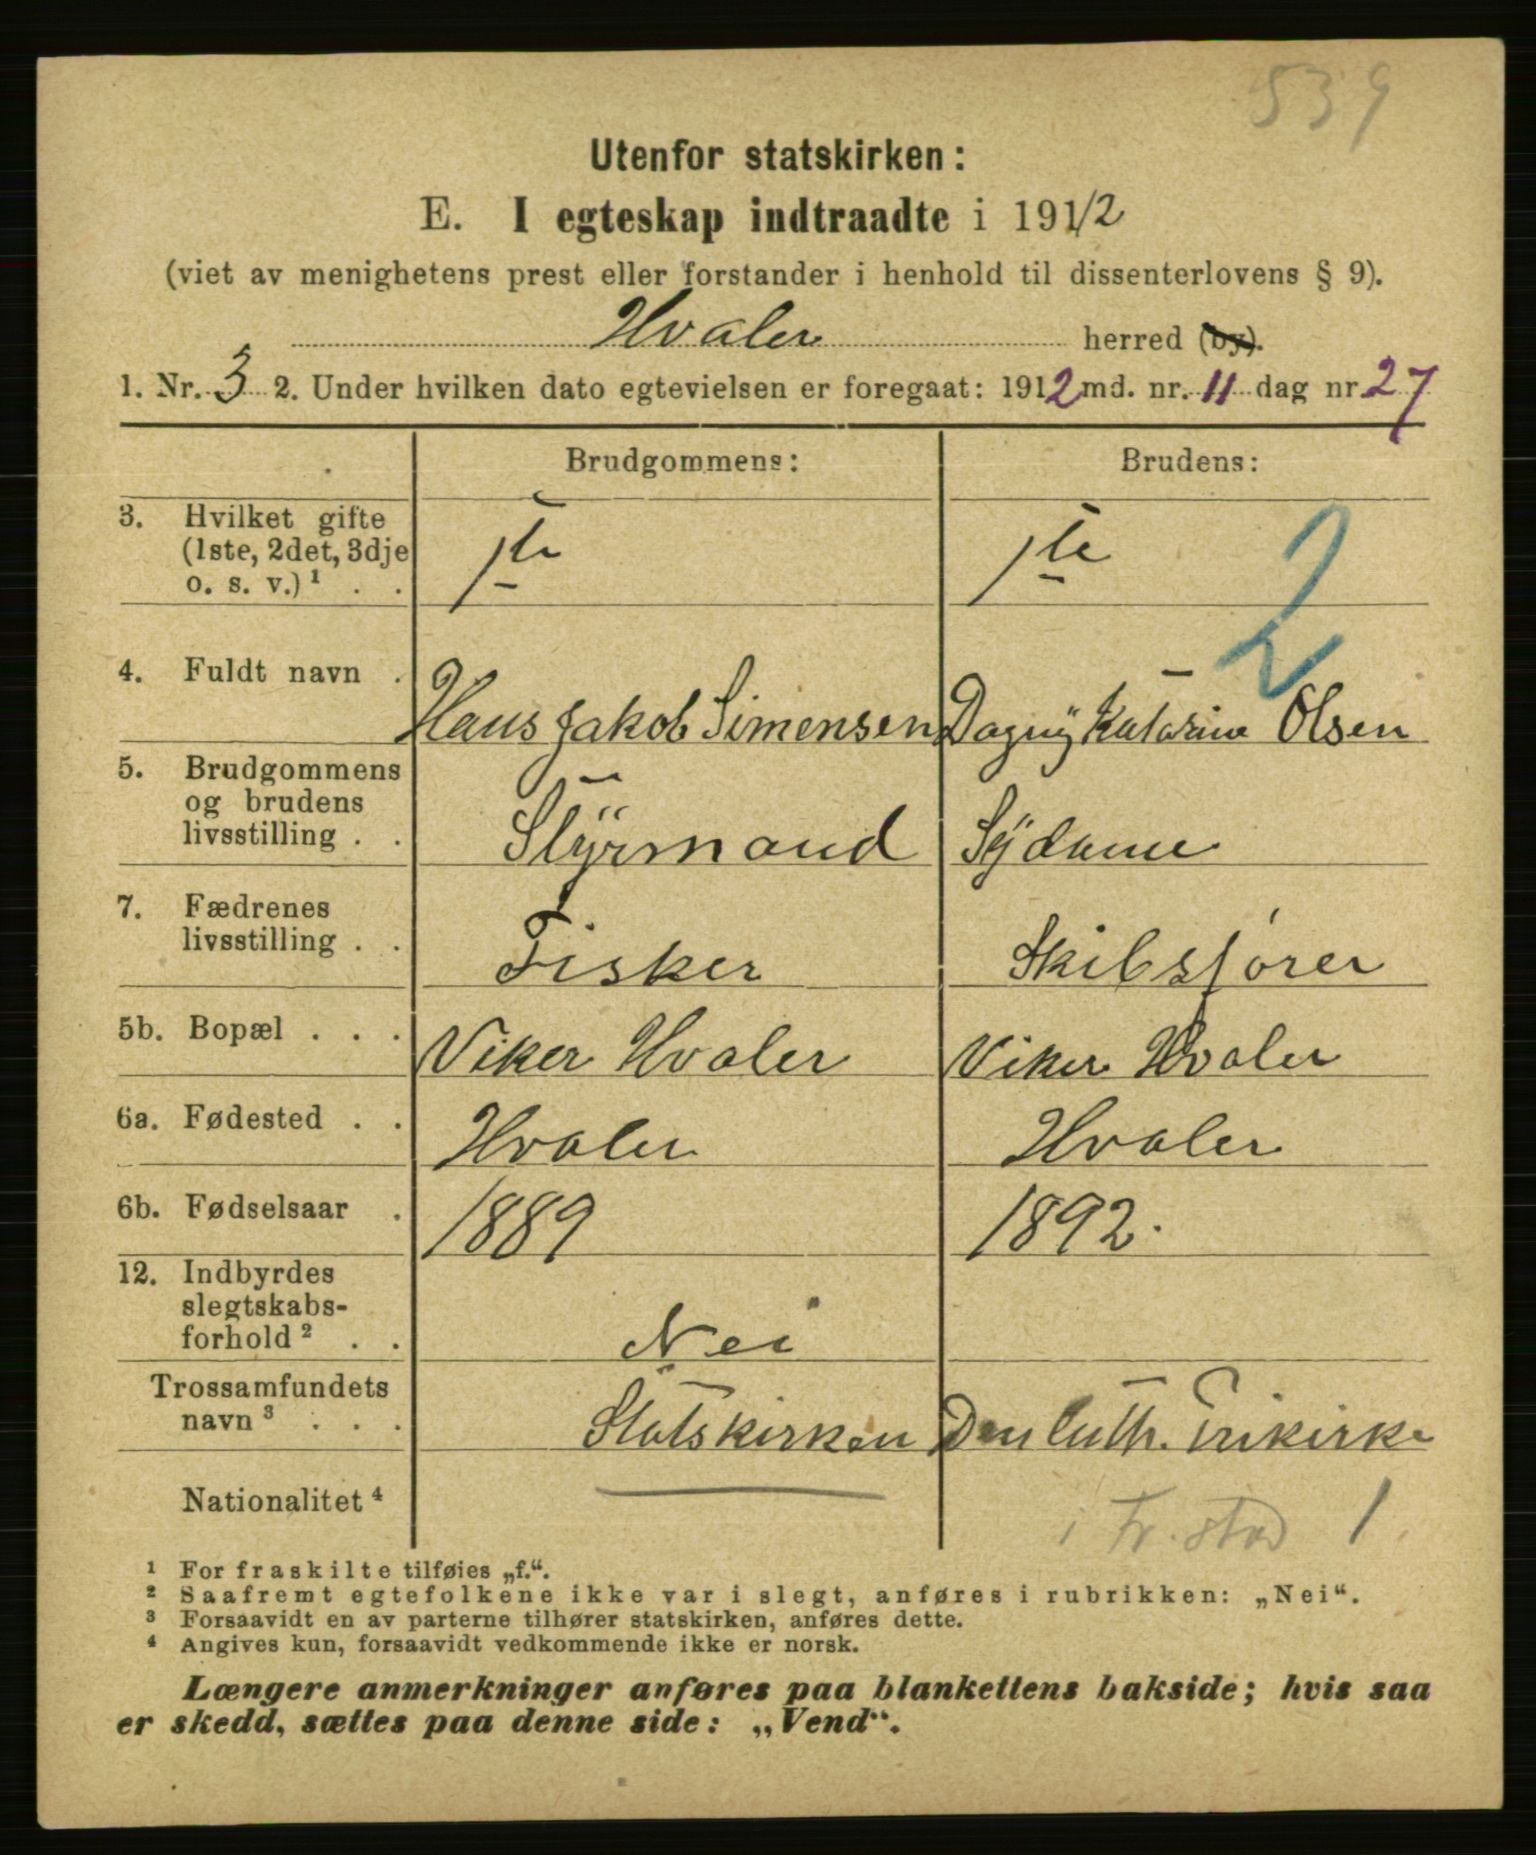 539
Utenfor statskirken:
E. I egteskap indtraadte i 1912
(viet av menighetens prest eller forstander i henhold til dissenterlovens § 9).
Hvaler herred (by).
1. Nr. 3 2. Under hvilken dato egtevielsen er foregaat: 1912 md. nr. 11 dag nr. 27
Brudgommens: Brudens:
3. Hvilket gifte
(1ste, 2det, 3dje
o. s. v.) ¹ . . 1ste 1ste
2
4. Fuldt navn . Hans Jakob Simensen Dagny Katarina Olsen
5. Brudgommens
og brudens
livsstilling . . Styrmand Sydame
7. Fædrenes
livsstilling . . Fisker Skibsfører
5b. Bopæl . . . Viker Hvaler Viker Hvaler
6a. Fødested . . Hvaler Hvaler
6b. Fødselsaar . 1889 1892.
12. Indbyrdes
slegtskabs-
forhold ² . . Nei
Trossamfundets
navn ³ . . . Statskirken Den luth. Frikirke
Nationalitet ⁴ i Fr.stad 1
¹ For fraskilte tilføies „f.“.
² Saafremt egtefolkene ikke var i slegt, anføres i rubrikken: „Nei“.
³ Forsaavidt en av parterne tilhører statskirken, anføres dette.
⁴ Angives kun, forsaavidt vedkommende ikke er norsk.
Længere anmerkninger anføres paa blankettens bakside; hvis saa
er skedd, sættes paa denne side: „Vend“.